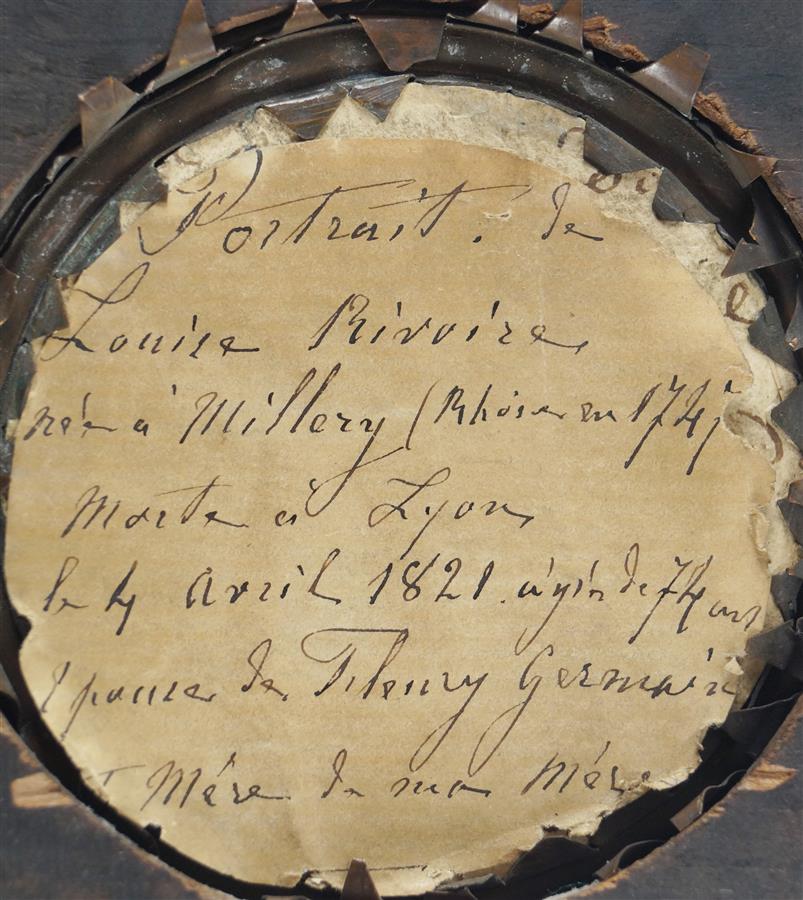 Portrait. de
Louise Rivoire
née à Millery (Rhône en 1747
Morte à Lyon
le 4 Avril 1821. agée de 74 ans
Epouse de Fleury Germain
et Mère de ma Mère